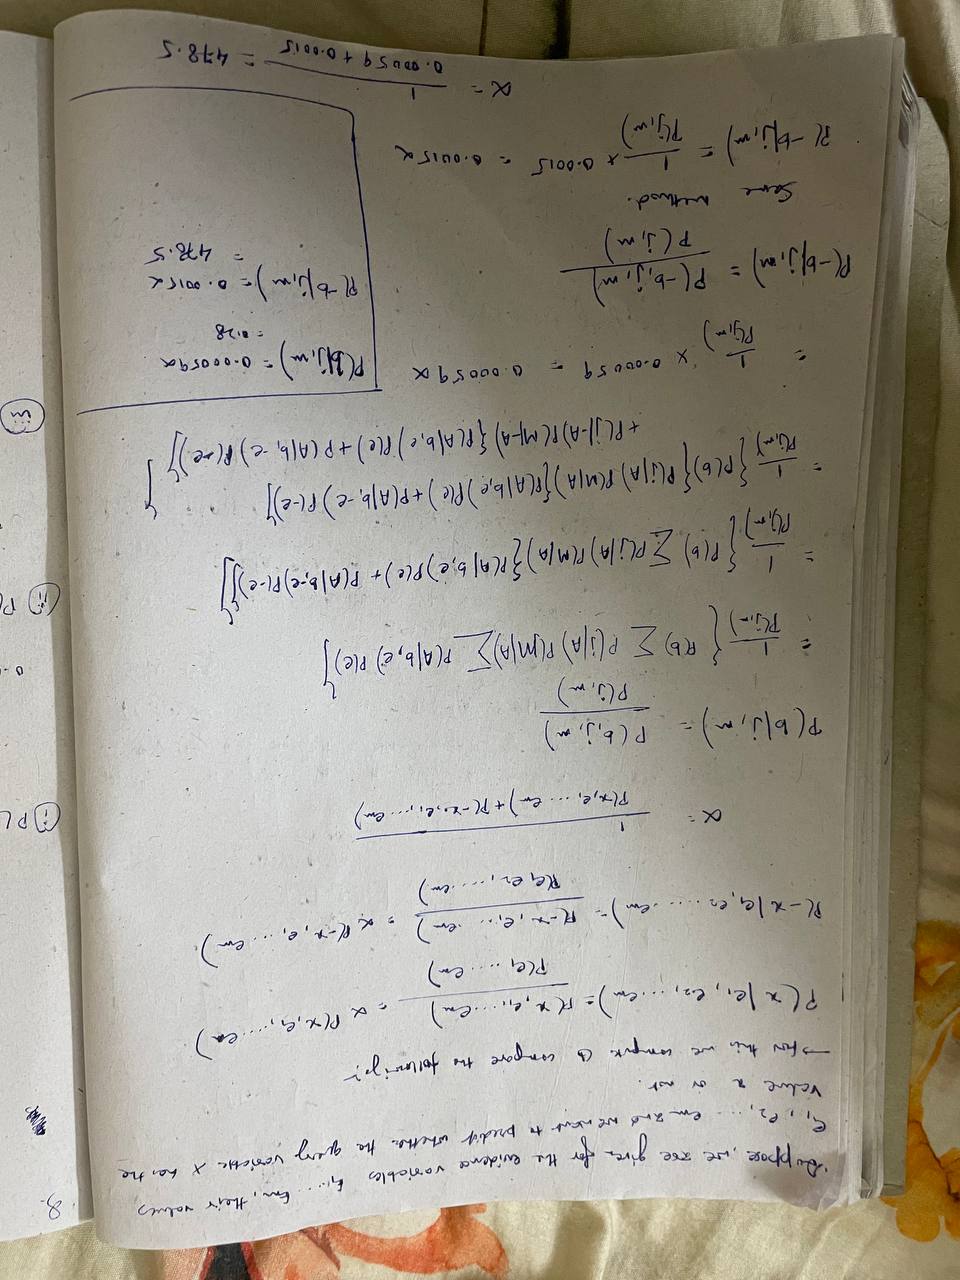 Suppose, we are given for the evidence variables E₁, ... Em, their values
e₁, e₂, ..., em and we want to predict whether the query variable X has the
value x or not.
→ For this we compute & compare the following:-
P(x|e₁, e₂, ... em) = P(x, e₁, ... em) / P(e₁ ... em) = α P(x, e₁, ... em)
P(¬x|e₁, e₂ ... em) = P(¬x, e₁, ... em) / P(e₁, e₂, ... em) = α P(¬x, e₁, ... em)
α = 1 / P(x, e₁, ... em) + P(¬x, e₁, ... em)
P(b|j,m) = P(b,j,m) / P(j,m)
= 1/P(j,m) { P(b) Σ P(j|A) P(M|A) Σ P(A|b,e) P(e) }
= 1/P(j,m) { P(b) Σ P(j|A) P(M|A) { P(A|b,e) P(e) + P(A|b,¬e) P(¬e) } }
= 1/P(j,m) { P(b) { P(j|A) P(M|A) { P(A|b,e) P(e) + P(A|b,¬e) P(¬e) }
+ P(j|¬A) P(M|¬A) { P(A|b,e) P(e) + P(A|b,¬e) P(¬e) } }
= 1/P(j,m) × 0.00059 = 0.00059α
P(¬b|j,m) = P(¬b,j,m) / P(j,m)
Same method.
P(¬b|j,m) = 1/P(j,m) × 0.0015 = 0.0015α
α = 1 / 0.00059 + 0.0015 = 478.5
P(b|j,m) = 0.00059α
= 0.28
P(¬b|j,m) = 0.0015α
= 478.5
8.
(i) P(
(ii) P(
0.
(iii)